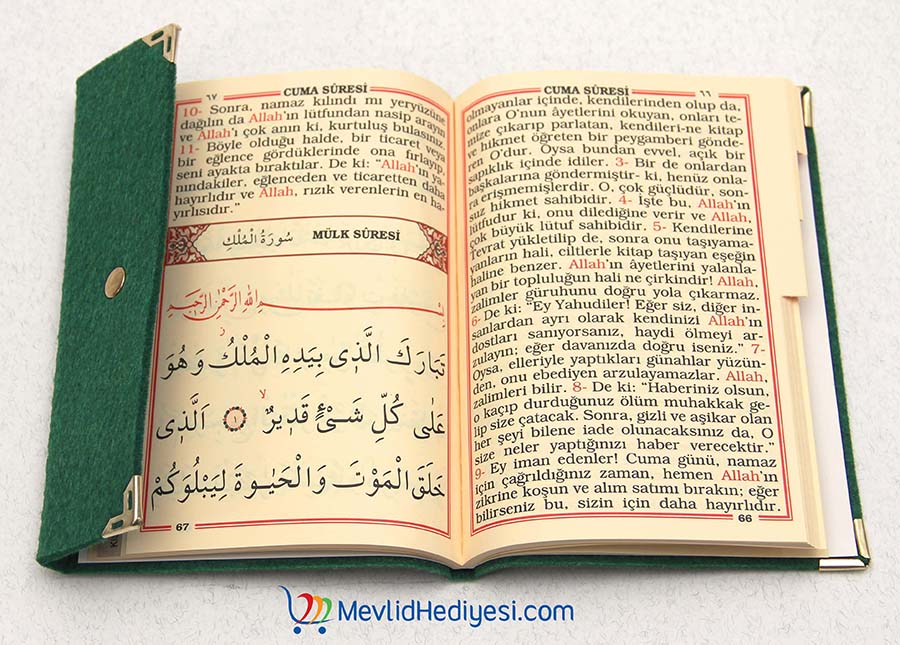 CUMA SÛRESİ ٦٦
olmayanlar içinde, kendilerinden olup da,
onlara O'nun âyetlerini okuyan, onları te-
mize çıkarıp parlatan, kendileri-ne kitap
ve hikmet öğreten bir peygamberi gönde-
ren O'dur. Oysa bundan evvel, açık bir
sapıklık içinde idiler. 3- Bir de onlardan
başkalarına göndermiştir- ki, henüz onla-
ra erişmemişlerdir. O, çok güçlüdür, son-
suz hikmet sahibidir. 4- İşte bu, Allah'ın
lütfudur ki, onu dilediğine verir ve Allah,
çok büyük lütuf sahibidir. 5- Kendilerine
Tevrat yükletilip de, sonra onu taşıyama-
yanların hali, ciltlerle kitap taşıyan eşeğin
haline benzer. Allah'ın âyetlerini yalanla-
yan bir topluluğun hali ne çirkindir! Allah,
zalimler güruhunu doğru yola çıkarmaz.
6- De ki: "Ey Yahudiler! Eğer siz, diğer in-
sanlardan ayrı olarak kendinizi Allah'ın
dostları sanıyorsanız, haydi ölmeyi ar-
zulayın; eğer davanızda doğru iseniz." 7-
Oysa, elleriyle yaptıkları günahlar yüzün-
den, onu ebediyen arzulayamazlar. Allah,
zalimleri bilir. 8- De ki: "Haberiniz olsun,
o kaçıp durduğunuz ölüm muhakkak ge-
lip size çatacak. Sonra, gizli ve aşikar olan
her şeyi bilene iade olunacaksınız da, O
size neler yaptığınızı haber verecektir."
9- Ey iman edenler! Cuma günü, namaz
için çağrıldığınız zaman, hemen Allah'ın
zikrine koşun ve alım satımı bırakın; eğer
bilirseniz bu, sizin için daha hayırlıdır.
66
٦٧ CUMA SÛRESİ
10- Sonra, namaz kılındı mı yeryüzüne
dağılın da Allah'ın lütfundan nasip arayın
ve Allah'ı çok anın ki, kurtuluş bulasınız.
11- Böyle olduğu halde, bir ticaret veya
bir eğlence gördüklerinde ona fırlayıp,
seni ayakta bıraktılar. De ki: "Allah'ın ya-
nındakiler, eğlenceden ve ticaretten daha
hayırlıdır ve Allah, rızık verenlerin en ha-
yırlısıdır."
سُورَةُ الْمُلْكِ MÜLK SÛRESİ
بِسْمِ اللهِ الرَّحْمٰنِ الرَّحِيمِ
تَبَارَكَ الَّذِى بِيَدِهِ الْمُلْكُ ز وَهُوَ
عَلٰى كُلِّ شَىْءٍ قَدِيرٌ لا ﴿١﴾ اَلَّذِى
خَلَقَ الْمَوْتَ وَالْحَيٰوةَ لِيَبْلُوَكُمْ
67
MevlidHediyesi.com